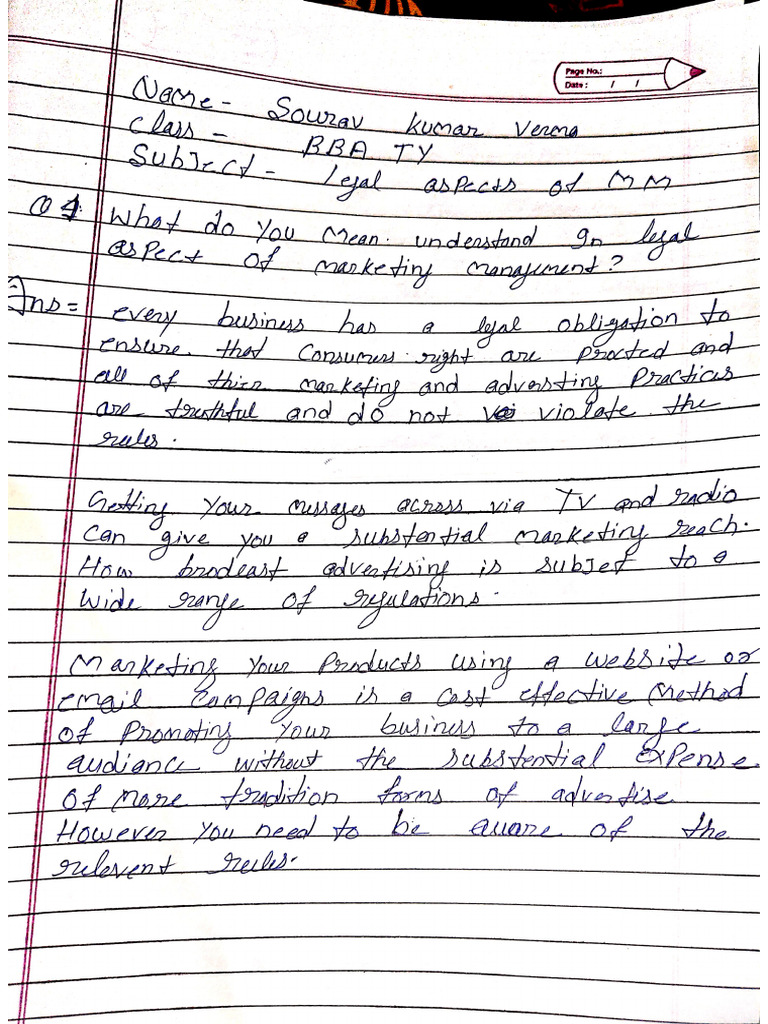 Page No.:
Date: / /
Name- Sourav Kumar Verma
Class - BBA TY
Subject- legal aspects of MM
Q 1 What do you mean. understand In legal
aspect of marketing management?
Ans= every business has a legal obligation to
ensure that consumers right are procted and
all of thier marketing and adversting Practices
are truthful and do not violate the
rules.
Getting your messages across via TV and radio
can give you a substantial marketing reach.
How brodcast advertising is subjet to a
wide range of regulations.
Marketing your Products using a website or
email campaigns is a cost effective method
of Promoting your business to a large
audianc without the substential expense
of more tradition forms of advertise.
However you need to be aware of the
relevent rules.